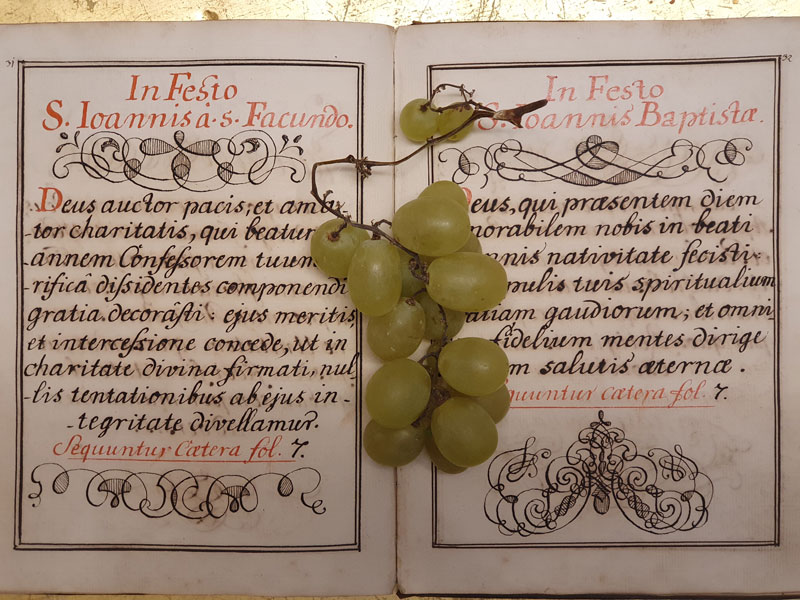 31
In Festo
S. Ioannis à s. Facundo.
Deus auctor pacis, et
-tor charitatis, qui
annem Confessorem tuum
-rificâ dissidentes componendi
gratia decorâsti: ejus meritis
et intercessione concede, ut in
charitate divina firmati, nul
-lis tentationibus ab ejus in-
-tegritate divellamur.
Sequuntur Cætera fol. 7.
32
In Festo
S. Ioannis Baptistæ.
eus, qui præsentem diem
norabilem nobis in beati
nnis nativitate fecisti:
pulis tuis spiritualium
atiam gaudiorum; et omni
fidelium mentes dirige
m salutis æternæ.
quuntur Cætera fol. 7.